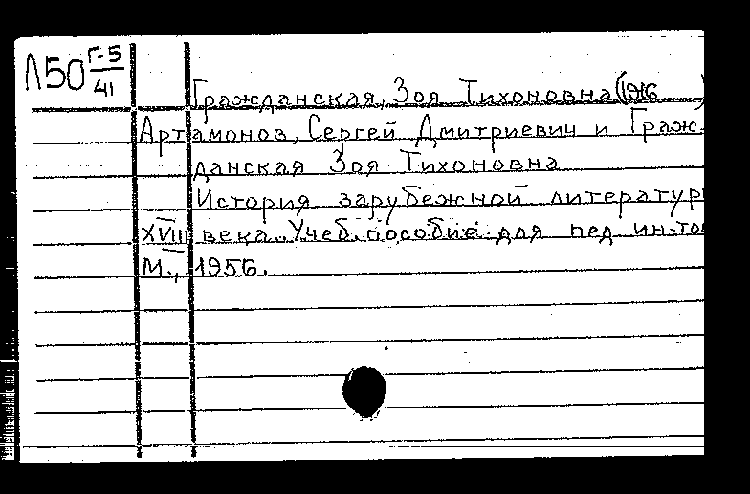 Л50 Г-5/41
Гражданская, Зоя Тихоновна (
Артамонов, Сергей Дмитриевич и Граж-
данская Зоя Тихоновна
История зарубежной литератур
XVIII века. Учеб. пособие для пед ин-то
М., 1956.